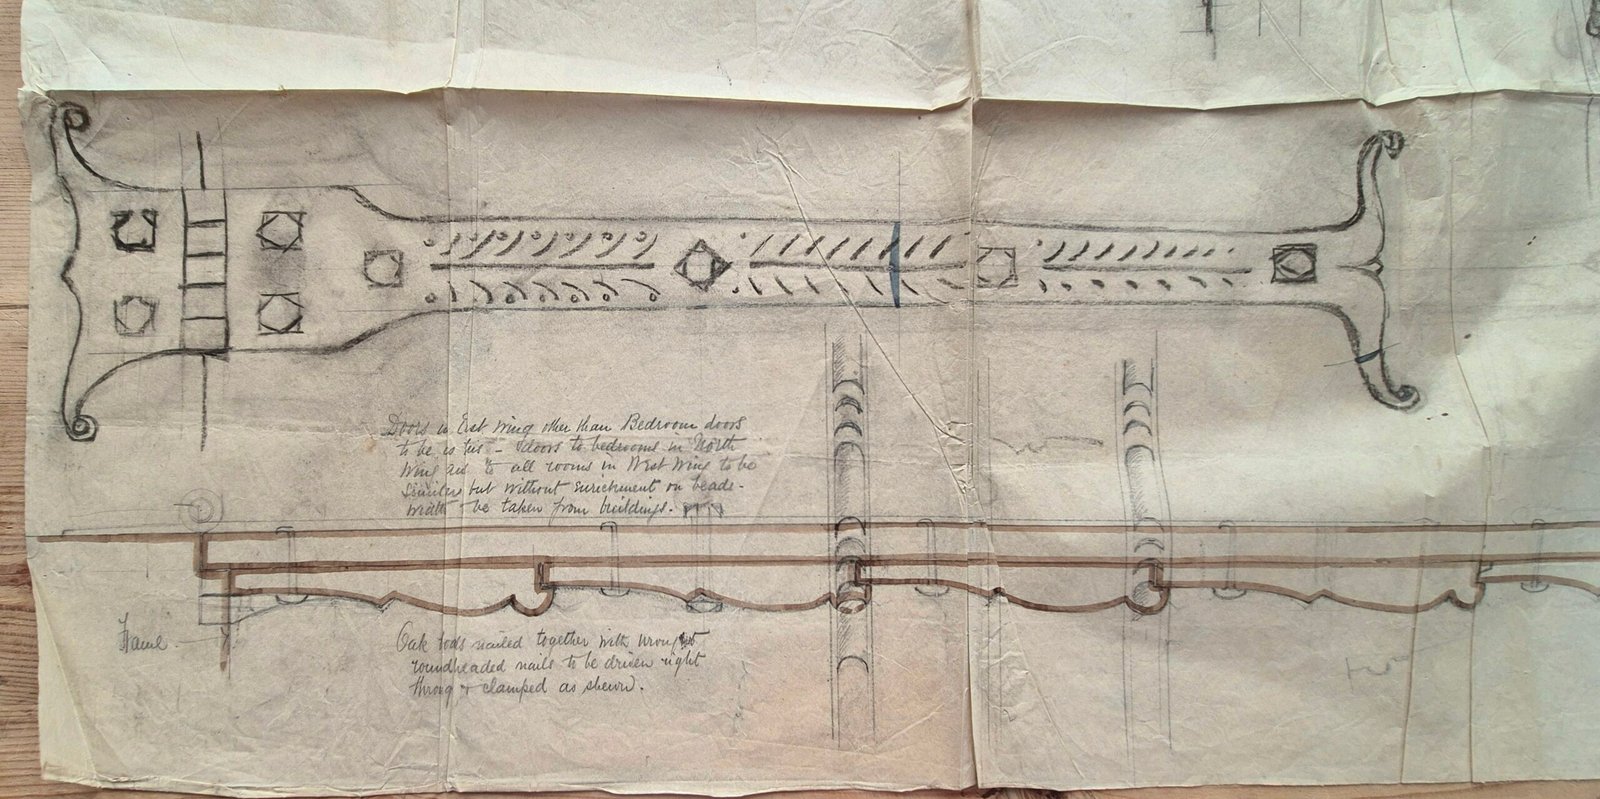 Doors in East Wing other than Bedroom doors
to be as this - doors to bedrooms in North
Wing and to all rooms in West Wing to be
similar but without enrichment on beads -
width to be taken from buildings.
Frame
Oak bods nailed together with wrought
roundheaded nails to be driven right
throug & clamped as shewn.